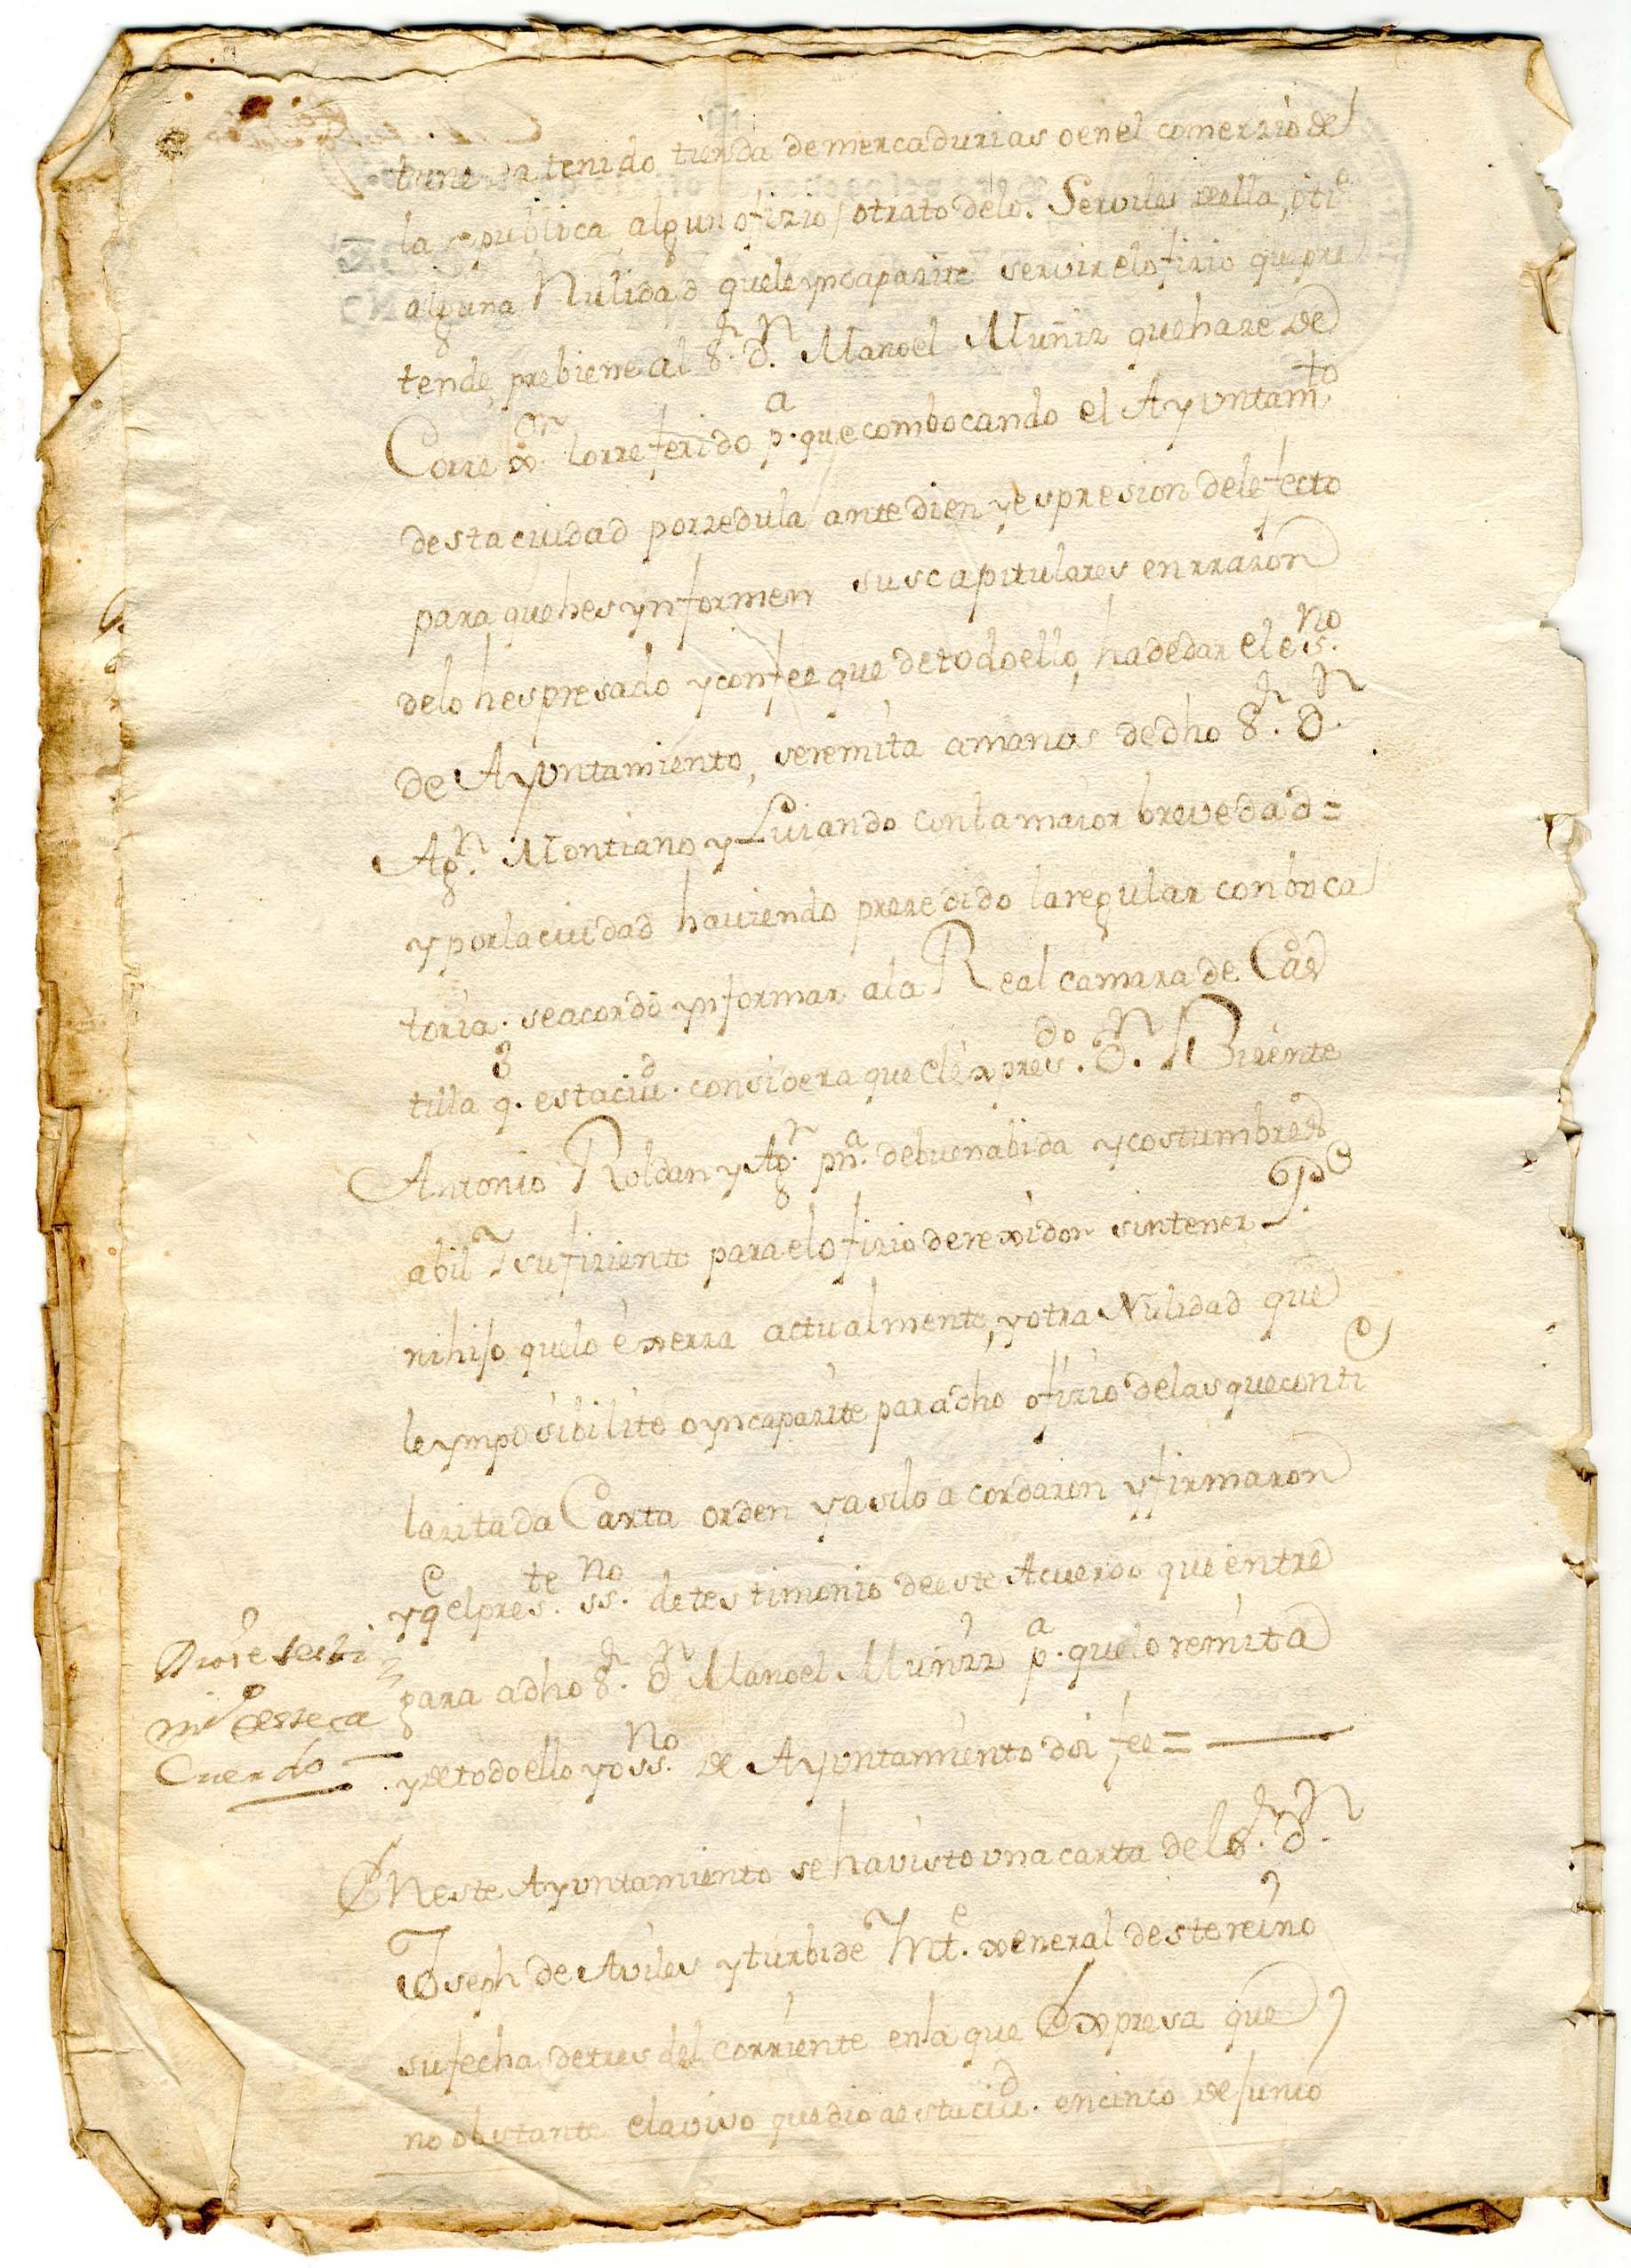 tiene o a tenido tienda de mercadurias o en el comerzio de
la republica algun ofizio, o trato de los. Serviles de ella, o ti.ª
alguna Nulidad que le yncapazite servir el ofizio que pre
tende, prebiene al S.r D.n Manoel Muñiz que haze de
Correx.or lo rreferido p.a que combocando el Ayuntam.to
desta ciudad por zedula ante dien y espresion del efecto
para que hes ynformen sus capitulares en rrazon
delo hespresado y con fee que de todo ello, ha de dar el es.no
de Ayuntamiento, se remita a manos de dho S.r D.n
Ag.n Montiano y Luiando con la maior brevedad =
y por la ciudad haviendo prezedido la regular conboca
toria. se acordo ynformar a la Real camara de Cas
tilla q.e esta ciu.d considera que el expres.do D.n Bizente
Antonio Roldan y Ag.r pn.a de buena bida y costumbres
abil y sufiziente para el ofizio de rexidor sin tener P.e
ni hijo que lo exerza actualmente, y otra Nulidad que
le ymposibilite o yncapazite para dho ofizio de las que conti.e
la zitada Carta orden y asi lo acordaron y firmaron
y q.e el pres.te ss.no de testimonio de este Acuerdo que entre
para a dho S.r D.n Manoel Muñiz p.a que lo remita
y de todo ello yo ss.no de Ayuntamiento doi fee = —
Diose testi
m.o de este a
Cuerdo —
En este Ayuntamiento se ha visto una carta del S.r D.n
Joseph de Aviles yturbide Int.e xeneral deste reino
su fecha de tres del corriente en la que Expresa que
no obstante el aviso que dio a esta ciu.d en cinco de Junio